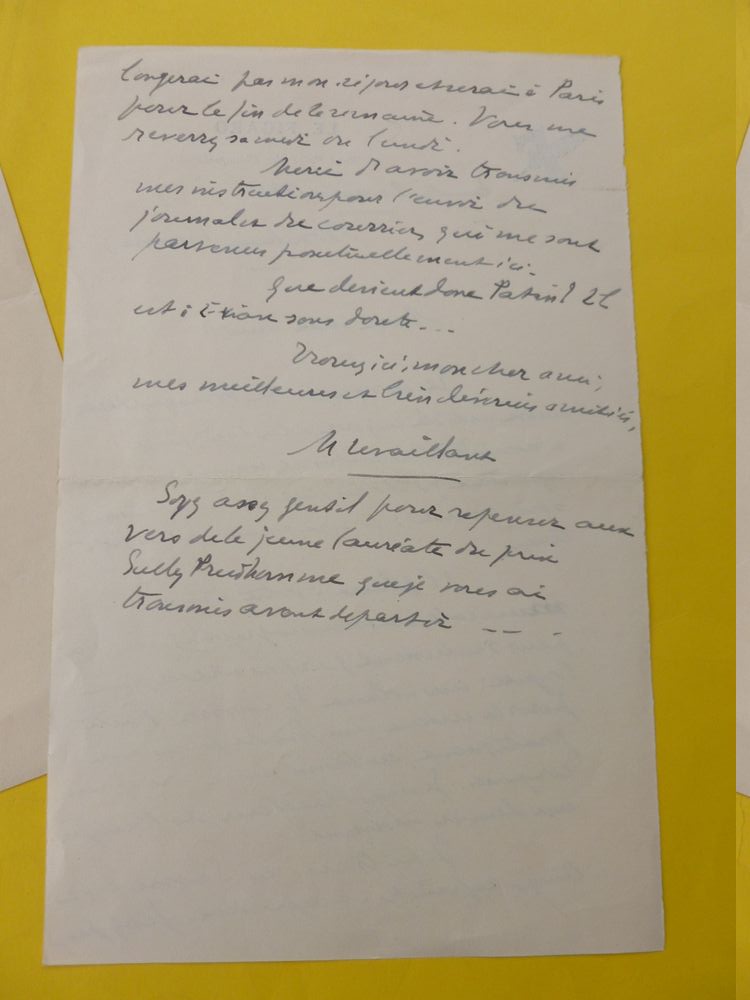 longerai pas mon séjour et serai à Paris
pour la fin de la semaine. Vous me
reverrez samedi ou lundi.
Merci d'avoir transmis
mes instructions pour l'envoi des
journaux et du courrier, qui me sont
parvenus ponctuellement ici.
Que devient donc Patin? Il
est à Evian sans doute...
Croyez ici, mon cher ami,
mes meilleures et bien dévouées amitiés,
M Levaillant
Soyez assez gentil pour repenser aux
vers de la jeune lauréate du prix
Sully Prudhomme que je vous ai
transmis avant de partir ...